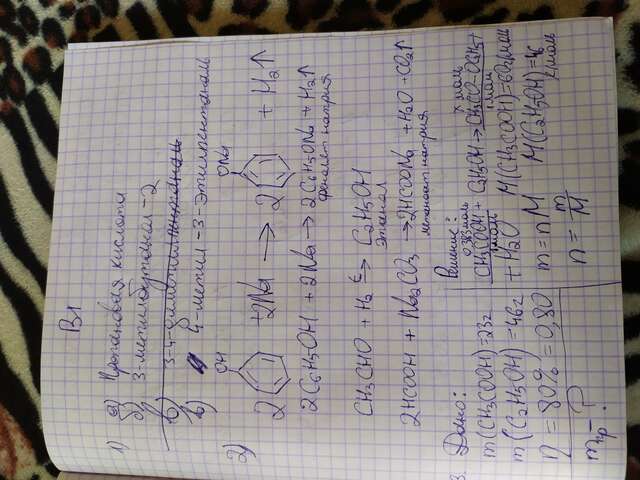 В1
1) а) Пропановая кислота
б) 3-метилбутанол-2
в) 3-4-диметил
в) 4-метил-3-этилпентаналь
2) OH ONa
2 + 2Na → 2 + H2↑
2C6H5OH + 2Na → 2C6H5ONa + H2↑
фенолят натрия
CH3CHO + H2 →t C2H5OH
этанол
2HCOOH + Na2CO3 → 2HCOONa + H2O + CO2↑
метаноат натрия
3. Дано:
m(CH3COOH) = 23г
m(C2H5OH) = 46г
η = 80% = 0,80
mпр - ?
Решение:
0,383моль х моль
CH3COOH + C2H5OH → CH3CO-OC2H5+
1моль 1моль
+ H2O M(CH3COOH)=60г/моль
m = nM M(C2H5OH)=46г/моль
n = m/M